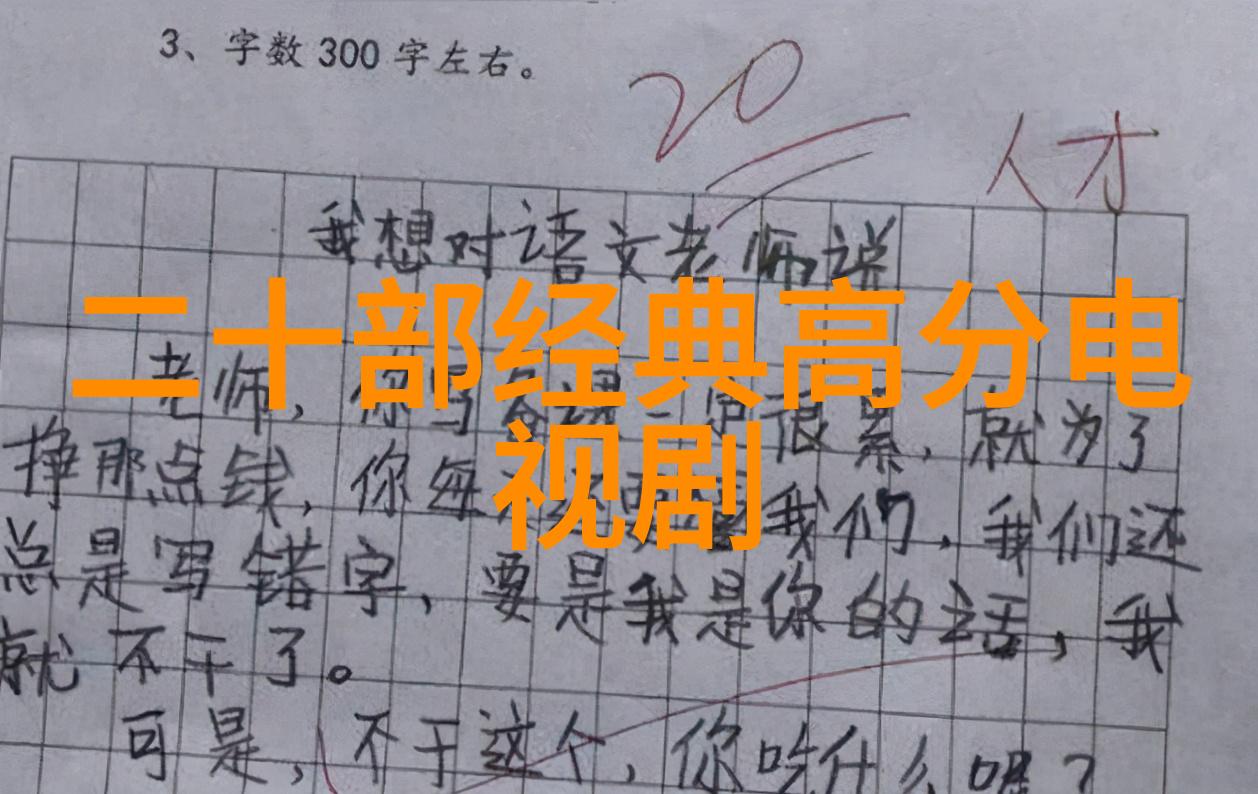 3、字数300字左右。
20
人才
我想对语文老师说
二十部经典高分电
视剧
老师，你写很累，就为了
挣那点钱，你每我们，我们还
总是写错字，要是我是你的话，我
就不干了。
可是，不干这个，你吃什么呢？